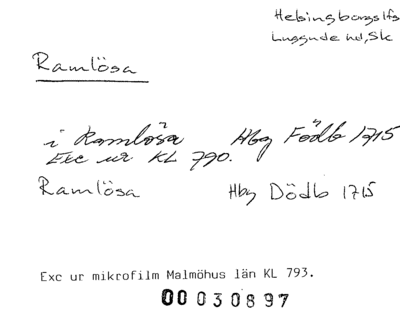 Helsingborgs lfs
Luggude hd, Sk
Ramlösa
i Ramlösa Hbg Födb 1715
Exc ur KL 790.
Ramlösa Hbg Dödb 1715
Exc ur mikrofilm Malmöhus län KL 793.
00030897